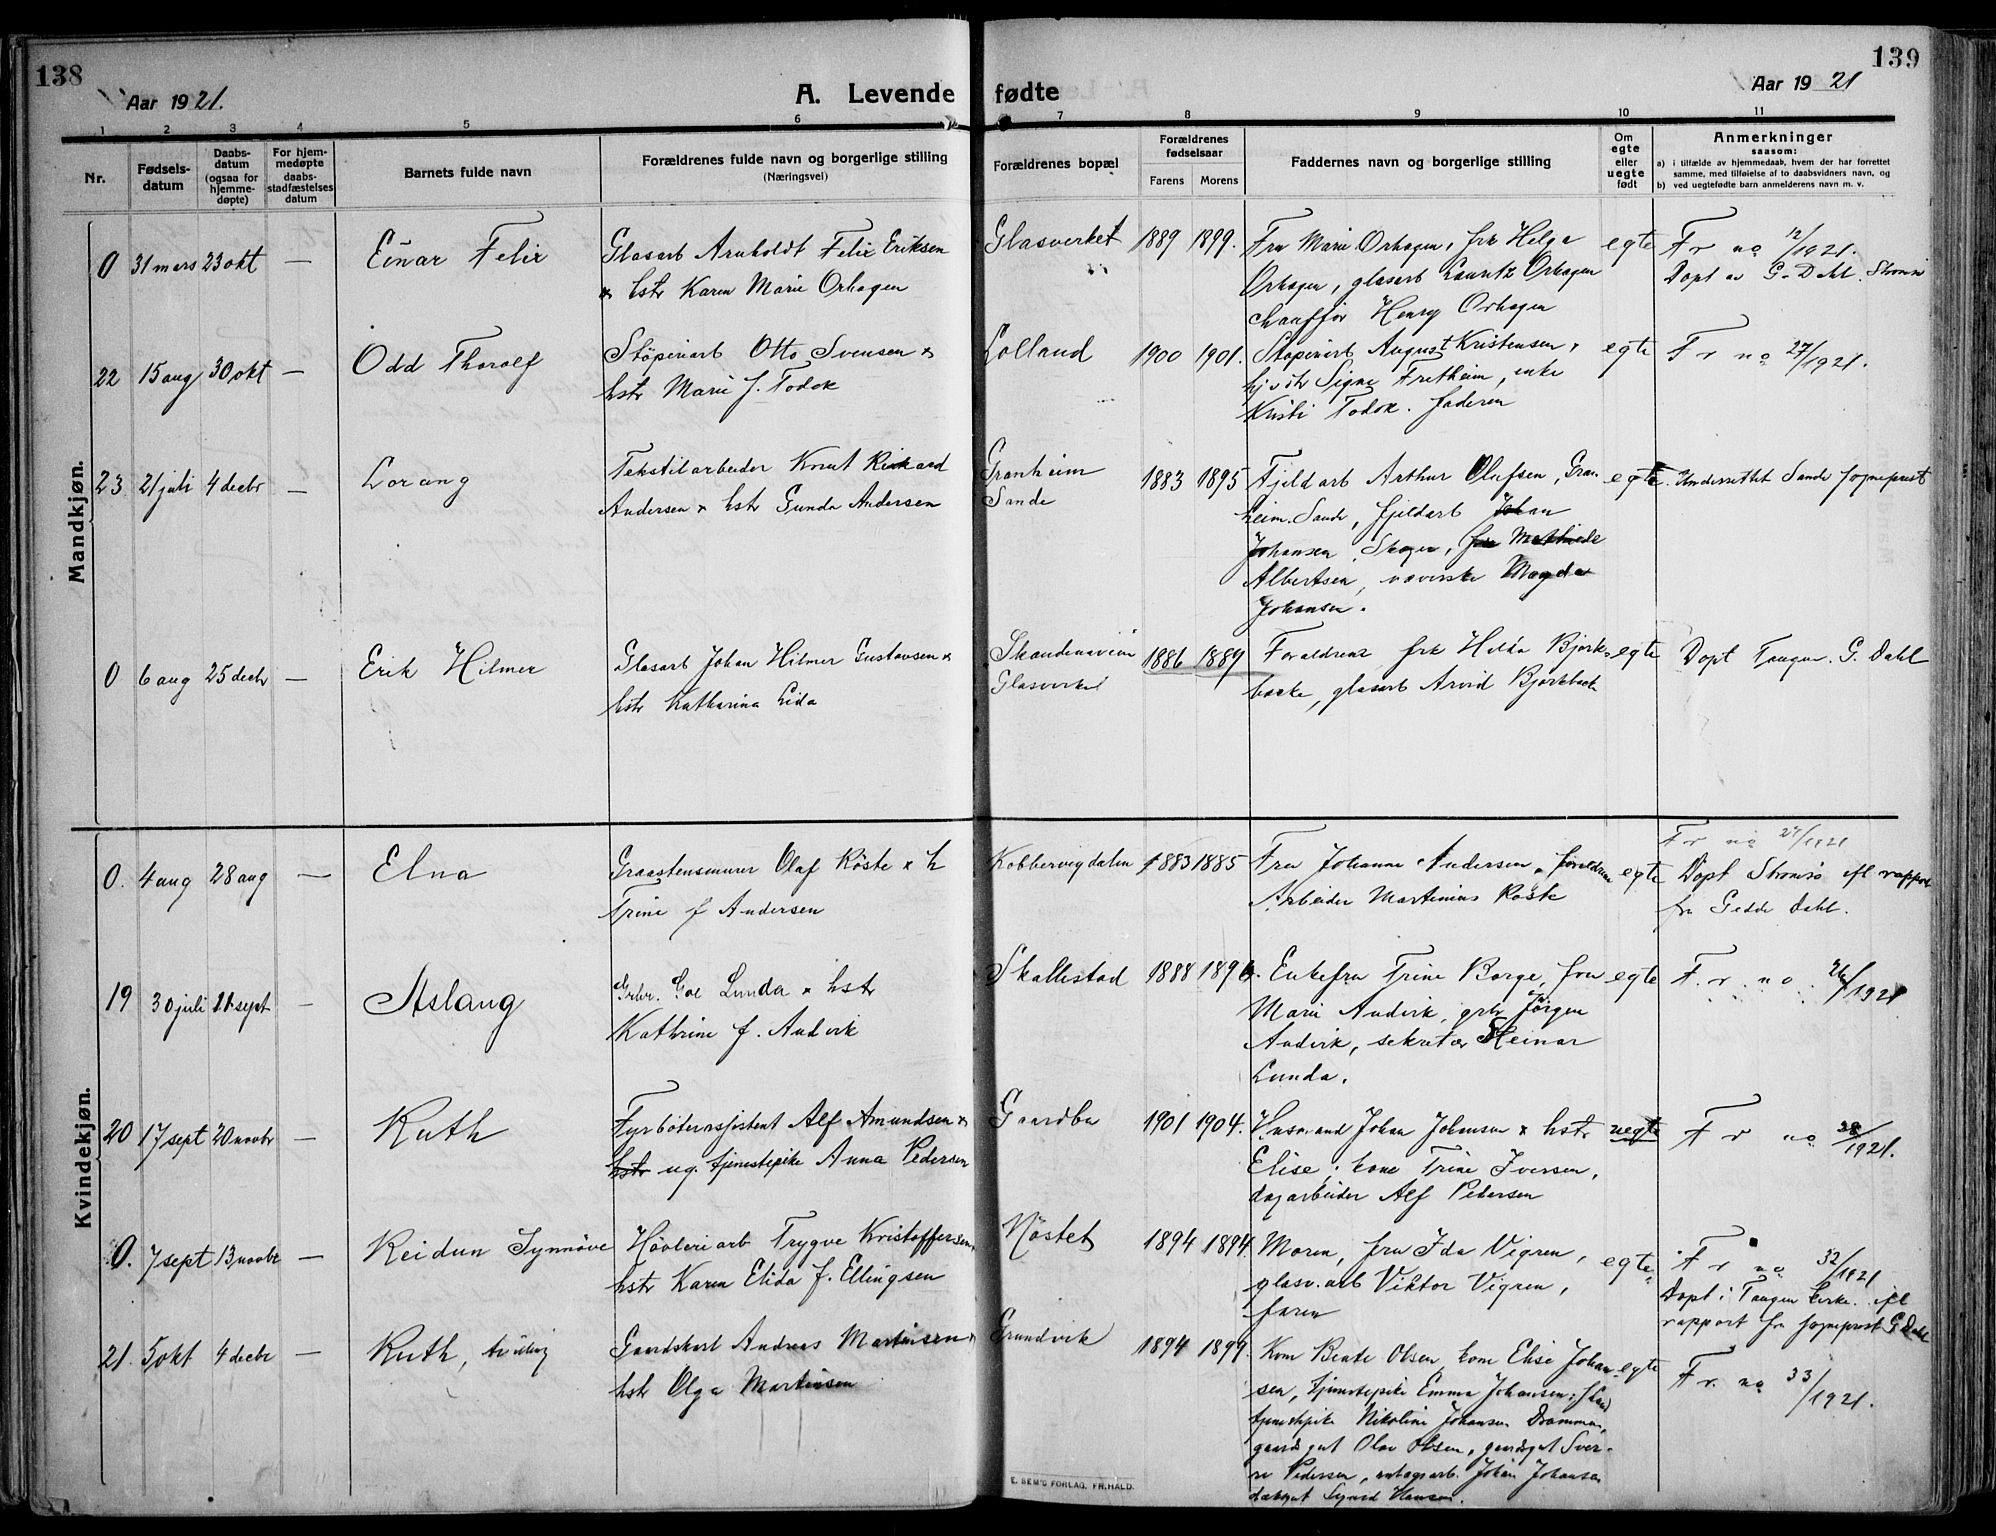 138
139
Aar 1921.
A. Levende fødte
Aar 1921
1 2 3 4 5 6 7 8 9 10 11
Nr.
Fødsels-
datum
Daabs-
datum
(ogsaa for
hjemme-
døpte)
For hjem-
medøpte
daabs-
stadfæstelses
datum
Barnets fulde navn
Forældrenes fulde navn og borgerlige stilling
(Næringsvei)
Forældrenes bopæl
Forældrenes
fødselsaar
Farens Morens
Faddernes navn og borgerlige stilling
Om
egte
eller
uegte
født
Anmerkninger
saasom:
a) i tilfælde av hjemmedaab, hvem der har forrettet
samme, med tilføielse af to daabsvidners navn, og
b) ved uegtefødte barn anmelderens navn m. v.
Mandkjøn.
0 31 mars 23 okt — Einar Felix
Glasarb Arnholdt Felix Eriksen
x hstr Karen Marie Orhagen
Glasverket 1889 1899.
Fru Marie Orhagen, frk Helga
Orhagen, glasarb Lauritz Orhagen
chauffør Henry Orhagen
egte
F r no 12/1921.
Døpt av G. Dahl. Strømsø
22 15 aug 30 okt — Odd Thorolf
Støperiarb Otto Svensen x
hstr Marie f. Todok
Lolland 1900 1901.
Støperiarb August Kristensen x
hstr Signe Fretheim, enke
Kristi Todok. faderen
egte
F r no 27/1921.
23 21 juli 4 decbr — Lorang
Tekstilarbeider Knut Rikard
Andersen x hstr Gunda Andersen
Granheim
Sande
1883 1895
Fjeldarb Arthur Olafsen, Gran
heim. Sande, fjeldarb Johan
Johansen Skoger, frk Mathilde
Albertsen, væverske Magda
Johansen.
egte.
Underrettet Sande sogneprest
0 6 aug 25 decbr — Erik Hilmer
Glasarb Johan Hilmer Gustavsen x
hstr Katharina Lida
Skandinavien
Glasverket
1886 1889
Forældrene frk Hilda Bjørk-
backe, glasarb Arvid Bjørkback
egte
Døpt Tangen. G. Dahl
Kvindekjøn.
0. 4 aug 28 aug — Elna
Graastensmurer Olaf Røste x h
Trine f Andersen
Kobbervigdalen 1883 1885
Fru Johanne Andersen, forældrene
Arbeider Martinius Røste
egte
F r no 24/1921
Døpt Strømsø efl rapport
fra Gedde Dahl.
19 30 juli 11 sept — Aslaug
Grbr. Goe Lunda x hstr
Kathrine f. Andvik
Skallestad 1888 1896.
Enkefru Trine Borge, fru
Marie Andvik, grbr Jørgen
Andvik, sekretær Steinar
Lunda.
egte
F. r. no 26/1921
20 17 sept 20 novbr — Ruth
Fyrbøterassistent Alf Amundsen x
hstr ug. tjenestepike Anna Pedersen
Gaardbu 1901 1904.
Husmand Johan Johansen x hstr
Elise, kone Trine Iversen,
dagarbeider Alf Pedersen
uegte
F r no 28/1921.
0. 7 sept 13 novbr — Reidun Synnøve
Høvleriarb Trygve Kristoffersen x
hstr Karen Elida f. Ellingsen
Nøstet 1894 1894.
Moren, fru Ida Vigren,
glasv.arb Viktor Vigren,
faren
egte
F r no 32/1921
Døpt i Tangen kirke. efl
rapport fra sogneprest G Dahl
21. 5 okt 4 decbr — Ruth, tvilling
Gaardskarl Andreas Martinsen x
hstr Olga Martinsen
Grundvik 1894 1899.
Kone Beate Olsen, kone Elise Johan
sen, tjenestepike Emma Johansen,
tjenestepike Nikoline Johansen Drammen,
gaardsgut Olav Olsen, gaardsgut Sver-
re Pedersen, anlægsarb. Johan Johansen
Sigurd Hansen.
egte
F r. no 33/1921.
E. SEM'S FORLAG, FR.HALD.